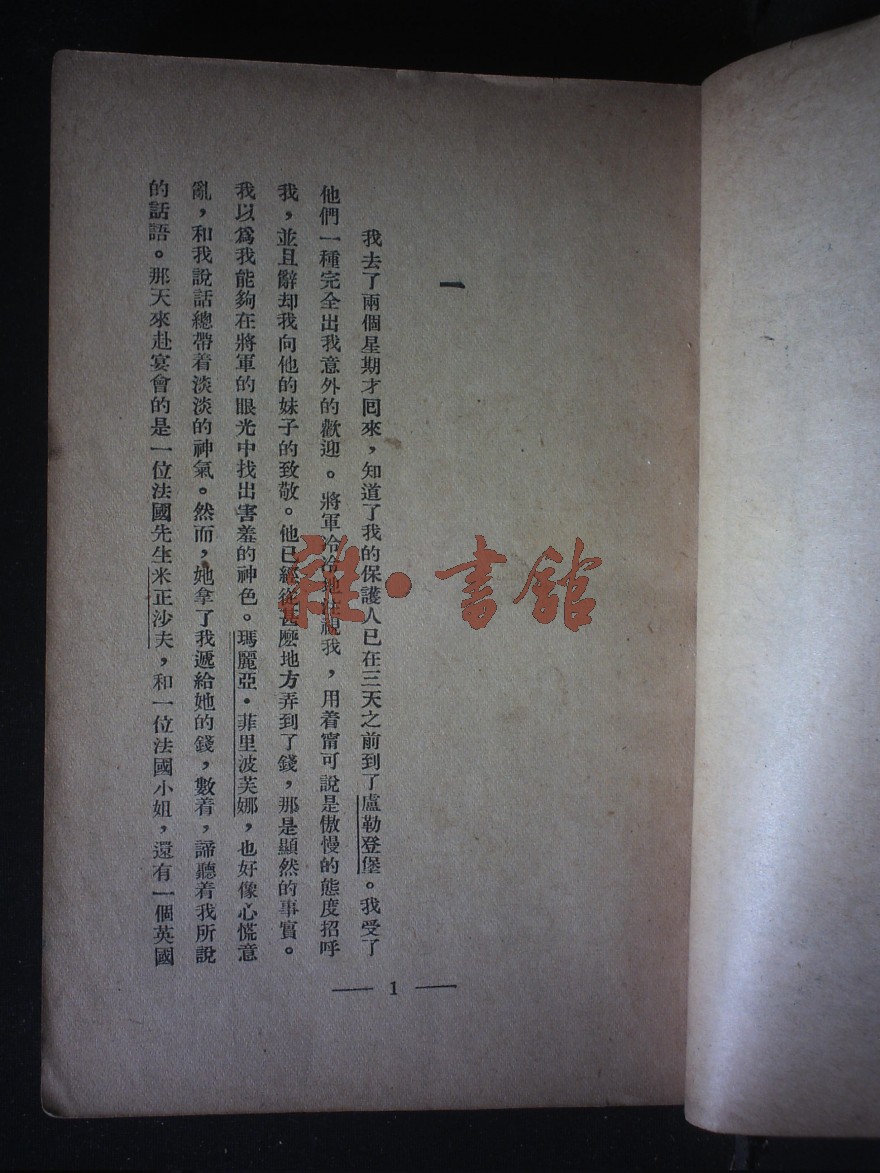 一
我去了兩個星期才囘來，知道了我的保護人已在三天之前到了盧勒登堡。我受了
他們一種完全出我意外的歡迎。將軍冷冷地注視我，用着甯可說是傲慢的態度招呼
我，並且辭却我向他的妹子的致敬。他已經從甚麽地方弄到了錢，那是顯然的事實。
我以爲我能夠在將軍的眼光中找出害羞的神色。瑪麗亞·菲里波芙娜，也好像心慌意
亂，和我說話總帶着淡淡的神氣。然而，她拿了我遞給她的錢，數着，諦聽着我所說
的話語。那天來赴宴會的是一位法國先生米正沙夫，和一位法國小姐，還有一個英國
— 1 —
雜·書館